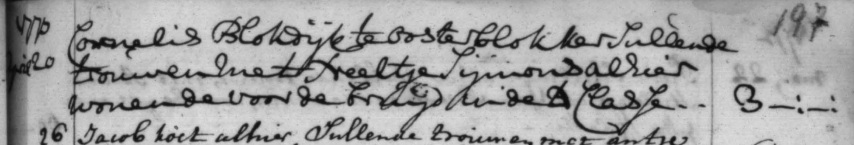 197
1770
Cornelis Blokdijk te oosterblokker Sullende
20 trouwen met Neeltje Sijmons alhier
wonende voor de bruijd in de Classe - - 3 -:-:
26 Jacob alhier, Sullende trouwen met antje